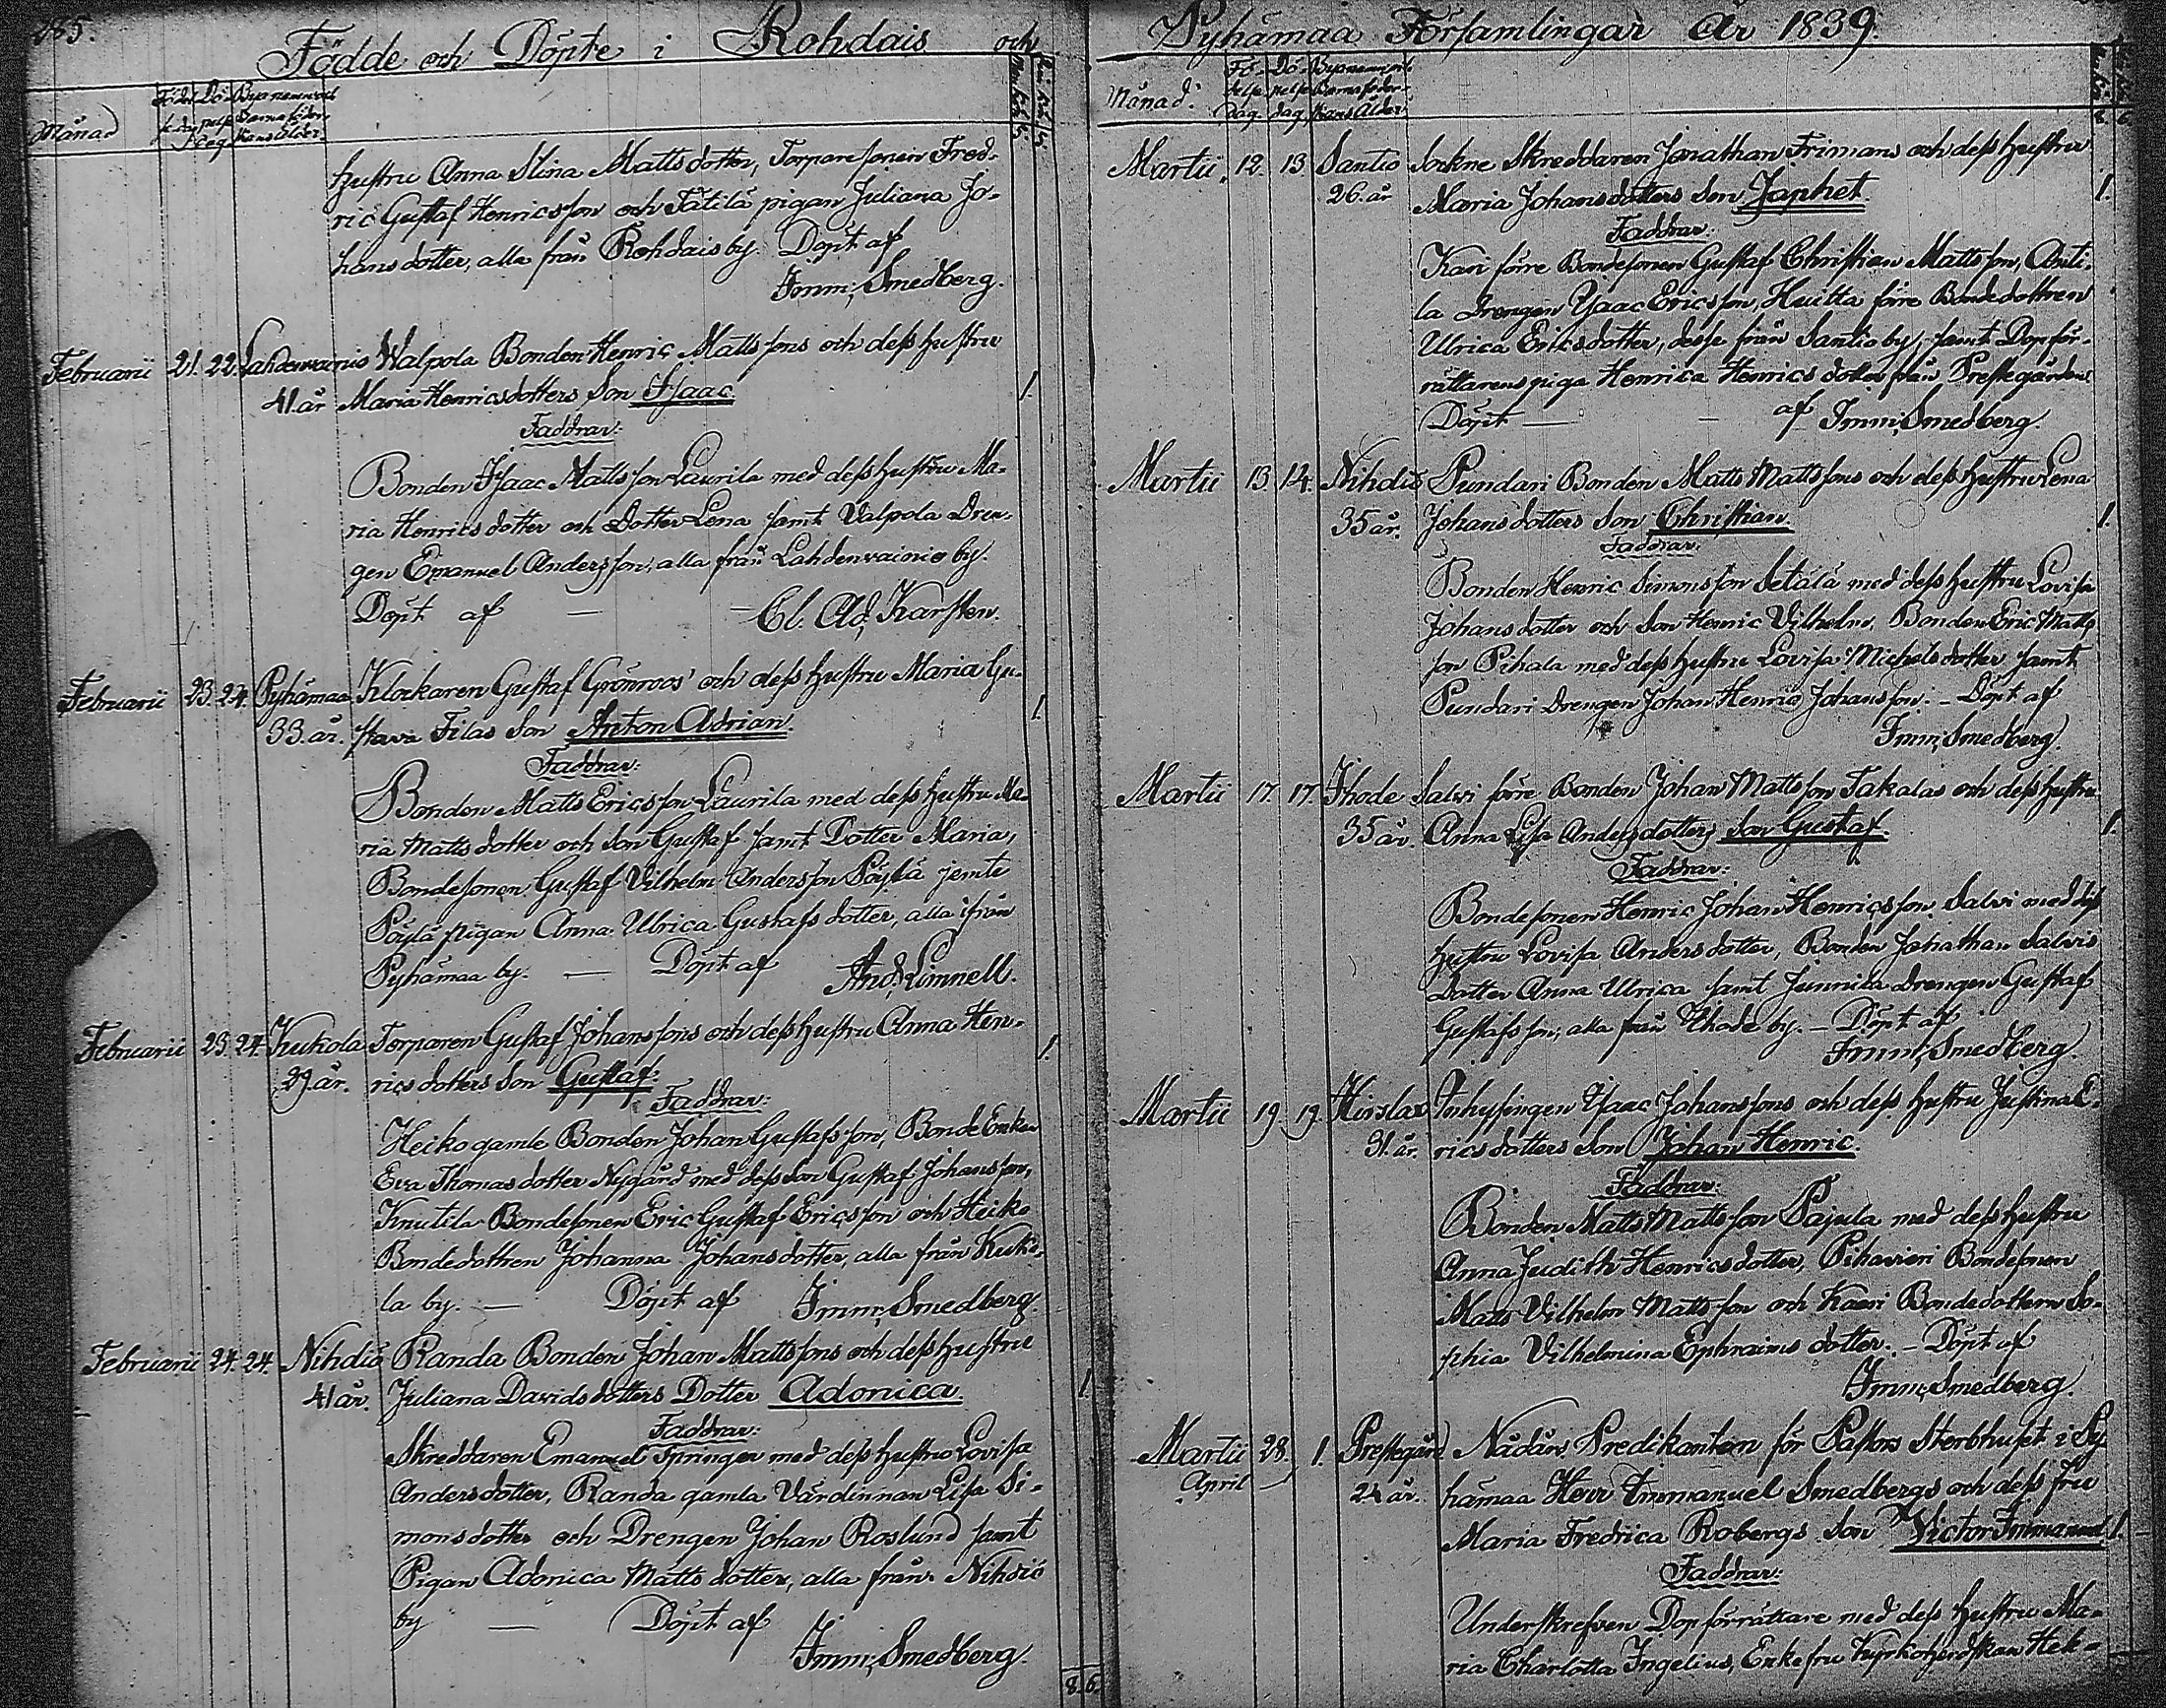 Födde och Döpte i Rohdais och
Månad
hustru Anna Stina Matts dotter, Torparesonen Fred-
ric Gustaf Henricsson och Tätilä pigan Juliana Jo-
hans dotter, alla från Rohdais by. Döpt af
Imm; Smedberg.
Februarii 21. 22. Lahdenvainio Walpola Bonden Henric Matts sons och dess hustru
41. år Maria Henricsdotters Son Isaac. 1.
Faddrar:
Bonden Isaac Mattsson Laurila med dess hustru Ma-
ria Henricsdotter och Dotter Lena samt Valpola Dren-
gen Emanuel Andersson, alla från Lahdenvainio by.
Döpt af — — Cl. Ad. Karsten.
Februarii 23. 24. Pyhämaa Klockaren Gustaf Grönroos' och dess hustru Maria Gu-
33. år. stava Filas Son Anton Adrian. 1.
Faddrar:
Bonden Matts Ericsson Laurila med dess hustru Ma-
ria Matts dotter och Son Gustaf samt Dotter Maria,
Bondesonen Gustaf Vilhelm Andersson Pöylä jemte
Pöylä pigan Anna Ulrica Gustafs dotter, alla ifrån
Pyhämaa by. — Döpt af And. Limnell.
Februarii 23. 24. Kukola Torparen Gustaf Johanssons och dess hustru Anna Hen-
29 år. rics dotters Son Gustaf. 1.
Faddrar:
Heiko gamle Bonden Johan Gustafsson, Bonde Enkan
Eva Thomas dotter Nygård med dess Son Gustaf Johansson,
Knutila Bondesonen Eric Gustaf Ericsson och Heiko
Bondedottren Johanna Johansdotter, alla från Kuko-
la by. — Döpt af Imm; Smedberg.
Februarii 24. 24. Nihdiö Randa Bonden Johan Mattssons och dess hustru
41 år. Juliana Davids dotters Dotter Adonica. 1.
Faddrar:
Skreddaren Emanuel Springer med dess hustru Lovisa
Andersdotter, Randa gamla Värdinnan Lisa Si-
monsdotter och Drengen Johan Roslund samt
Pigan Adonica Matts dotter, alla från Nihdiö
by — Döpt af
Imm; Smedberg.
8. 6.
Pyhämaa Församlingar År 1839.
Månad.
Martii. 12. 13. Santio Sockne Skreddaren Jonathan Frimans och dess hustru
26. år Maria Johansdotters Son Japhet. 1.
Faddrar:
Kari förre Bondesonen Gustaf Christian Mattsson, Anti-
la Drengen Isaac Ericsson, Huitta förre Bondedottren
Ulrica Ericsdotter, desse från Santio by, samt Dopför-
rättarens piga Henrica Henrics dotter från Prestegården.
Döpt — — af Imm; Smedberg.
Martii 13. 14. Nihdiö Pundari Bonden Matts Mattssons och dess hustru Lena
35 år. Johans dotters Son Christian. 1.
Faddrar:
Bonden Henric Simonsson Setälä med dess hustru Lovisa
Johans dotter och Son Henric Vilhelm, Bonden Eric Matts
son Pihala med dess hustru Lovisa Michels dotter samt
Pundari Drengen Johan Henric Johansson. — Döpt af
Imm; Smedberg.
Martii 17. 17. Ihode Salvi förre Bonden Johan Mattsson Takalas och dess hustru
35 år. Anna Lisa Andersdotters Son Gustaf. 1.
Faddrar:
Bondesonen Henric Johan Henricsson Salvi med dess
hustru Lovisa Anders dotter, Bonden Jonathan Salvis
Dotter Anna Ulrica samt Junnila Drengen Gustaf
Gustafsson, alla från Ihode by. — Döpt af
Imm; Smedberg.
Martii 19. 19. Hirslax Inhysingen Isaac Johanssons och dess hustru Justina E-
31. år. rics dotters Son Johan Henric.
Faddrar:
Bonden Matts Mattsson Pajula med dess hustru
Anna Judith Henricsdotter, Pihavieri Bondesonen
Matts Vilhelm Mattsson och Kaeri Bondedottren So-
phia Vilhelmina Ephraims dotter. — Döpt af
Imm; Smedberg.
Martii 28. 1. Prestegård Nådårs Predikanten för Pastors Sterbhuset i Py-
April — 24 år. hämaa Herr Immanuel Smedbergs och dess fru
Maria Fredrica Robergs Son Victor Immanuel. 1.
Faddrar:
Underskrefven Dopförrättare med dess hustru Ma-
ria Charlotta Ingelius, Enkefru Kyrkoherdskan Hek-